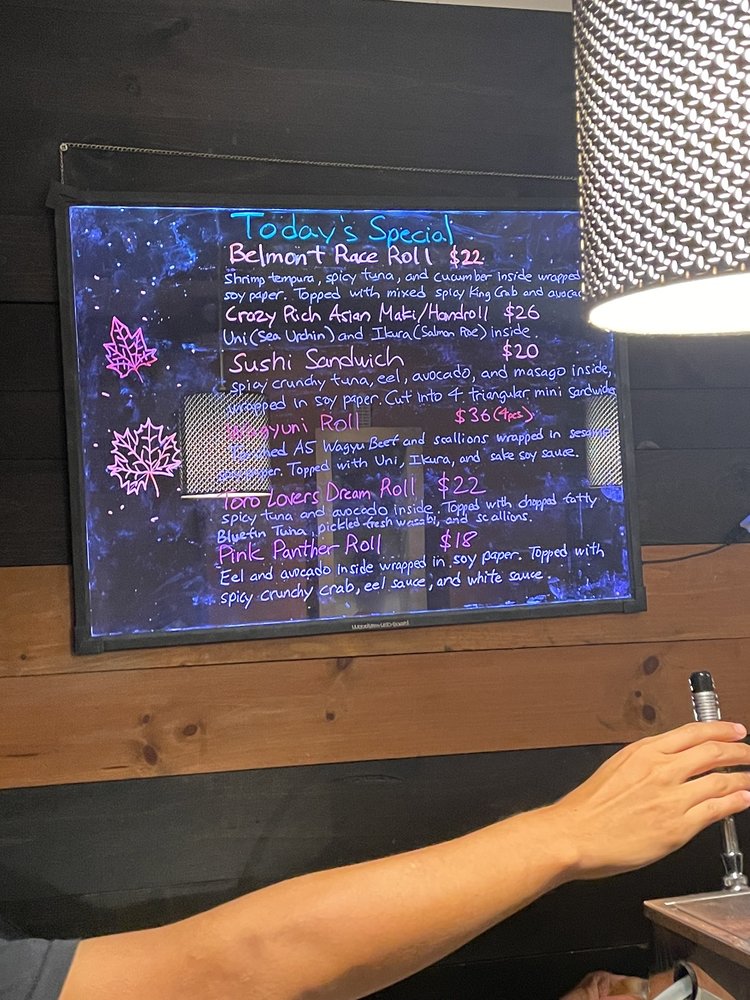 Today's Special
Belmont Race Roll $22
Shrimp tempura, spicy tuna, and cucumber inside wrapped
soy paper. Topped with mixed spicy King Crab and avoca
Crazy Rich Asian Maki/Handroll $26
Uni (Sea Urchin) and Ikura (Salmon Roe) inside.
Sushi Sandwich $20
spicy crunchy tuna, eel, avocado, and masago inside,
wrapped in soy paper. Cut into 4 triangular mini sandwiches
Roll $36 (4pcs)
A5 Wagyu Beef and scallions wrapped in sesame
paper. Topped with Uni, Ikura, and sake soy sauce.
Toro Lovers Dream Roll $22
spicy tuna and avocado inside. Topped with chopped fatty
Bluefin Tuna, pickled fresh wasabi, and scallions.
Pink Panther Roll $18
Eel and avocado inside wrapped in soy paper. Topped with
spicy crunchy crab, eel sauce, and white sauce.